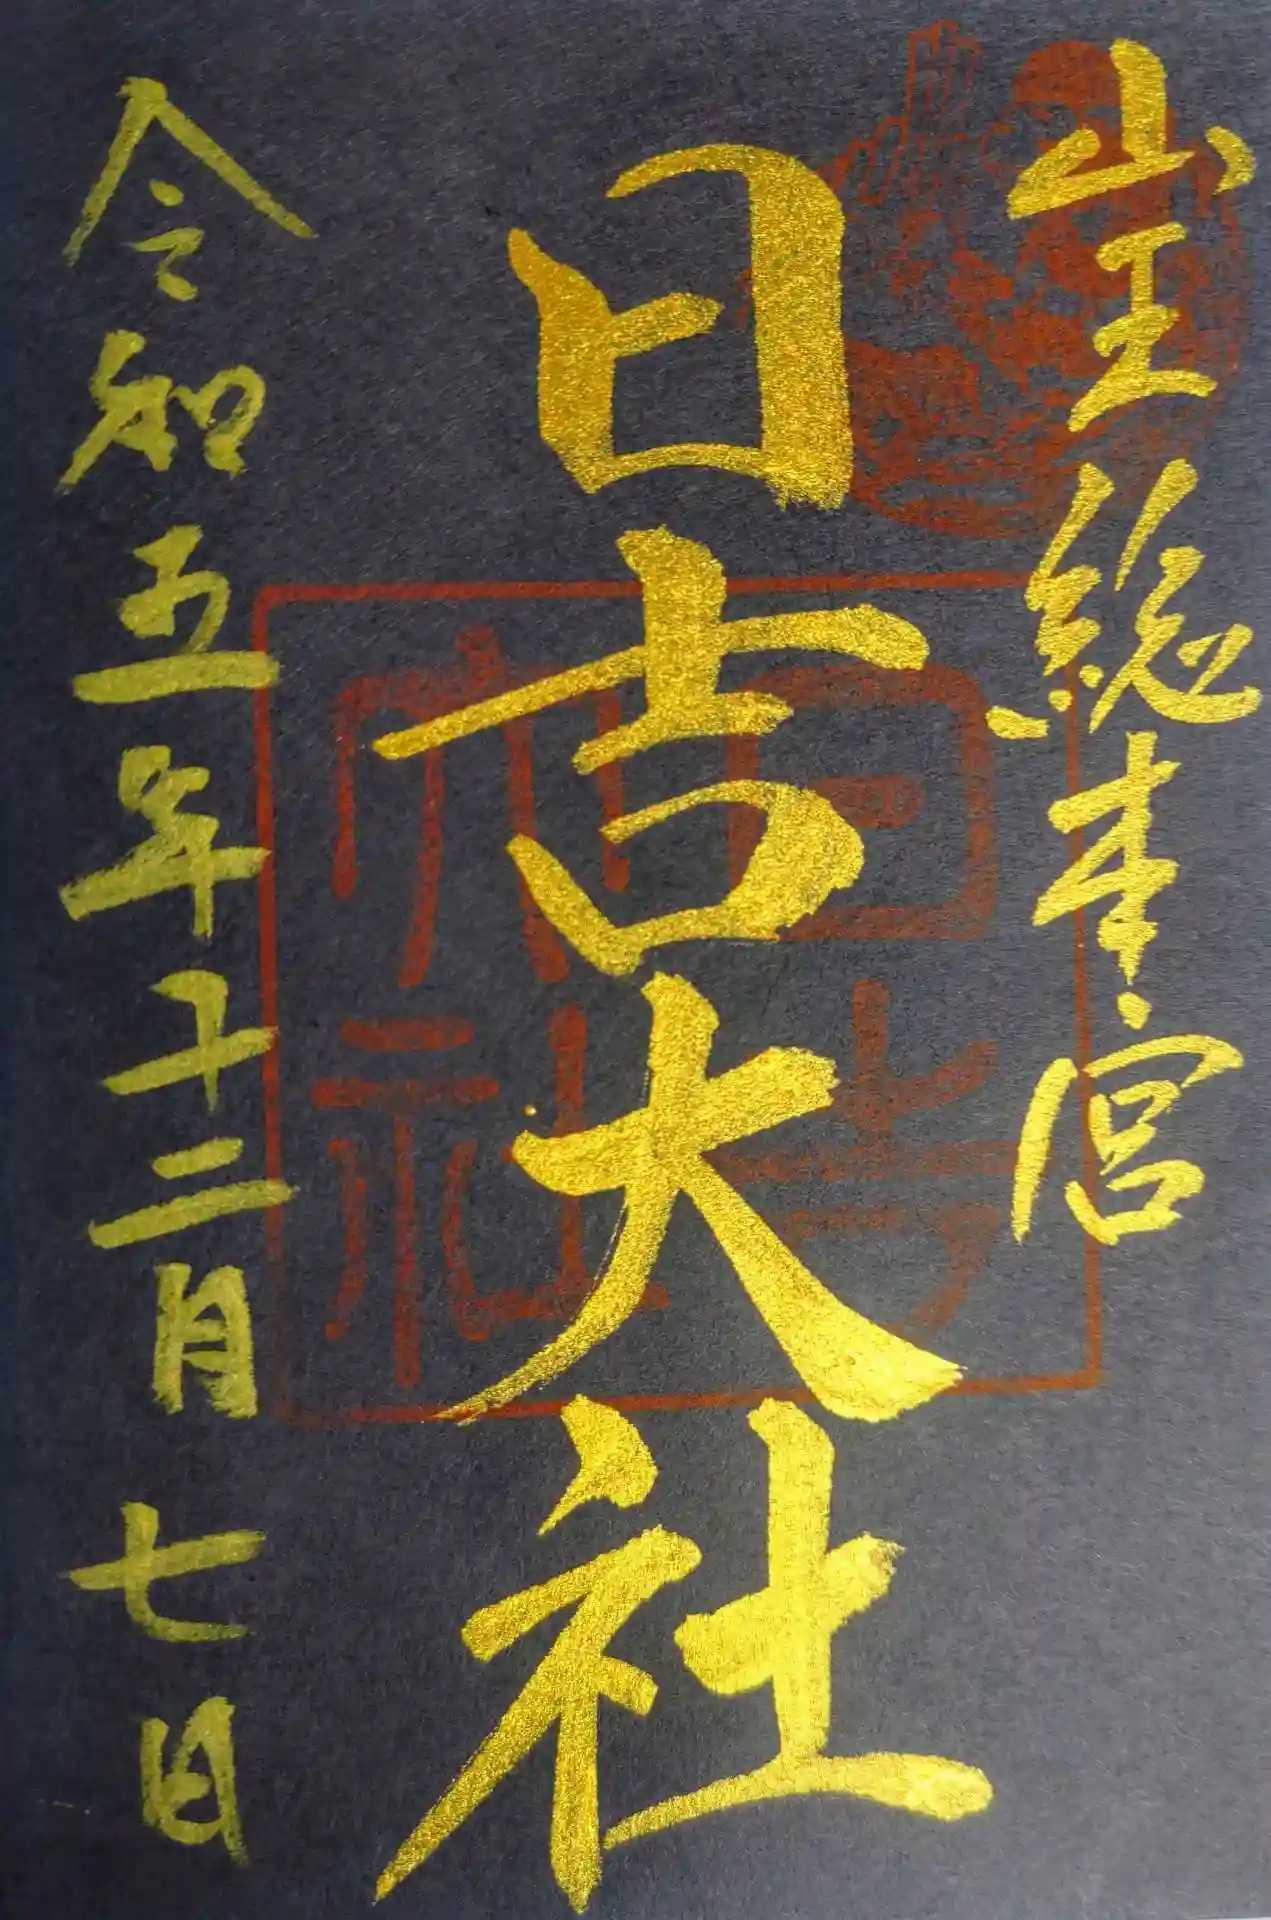 山王総本宮
日吉大社
令和五年十二月七日
日吉
大社